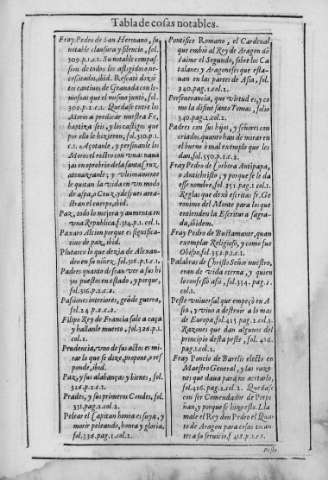 Tabla de cosas notables.
Fray Pedro de San Hermano, su
notable clausura y silencio, fol.
309. p. 1. c. 1. Su notable compas-
sion de todos los afligidos ne-
cessitados, ibid. Rescatò dozie
tos cautivos de Granada con li-
mosnas que el mismo juntò, fol.
300. p. 1. c. 1. Quedase entre los
Moros a predicar nuestra Fe,
baptiza seis, y los castigos que
por ello le hizieron, fol. 310. p.
1. c. 1. Açotanle, y
Moros
ja en oprobrio de la santa Cruz,
y
le quitan la vida en un madero
de aspa, o Cruz, y despues arras-
tran el cuerpo, ibid.
Paz, todo lo mejora y aumenta en
una Republica, fol. 314. p. 1. col. 1.
Paxaro Alcion porque es significa-
cion de paz, ibid.
Plutarco lo que dezia de Alexan-
dro en su niñez, fol. 316. p. 1. c. 1.
Padres quanto dessean ver a sus hi-
jos puestos en estado, y porque,
fol. 316. p. 1. c. 2.
Passiones interiores, gran de guerra,
fol. 24. p. 1. c. 2.
Filipo Rey de Francia sale a caça
y hallanle muerto, fol. 326. p. 1.
col. 2.
Prudencia, uno de sus actos es mi-
rar lo que se dize, propone, o res-
ponde, ibid.
Paz, y sus alabanças y bienes, fol.
326. p. 2. c. 2.
Prades, y sus primeros Condes, fol.
331. pag. 1. col. 2.
Pelear el Capitan honra es suya, y
morir peleando, honra y gloria,
fol. 336. pag. 1. col. 2.
Pontifice Romano, el Cardenal
que embiò al Rey de Aragon de
Iaime el Segundo, sobre los Ca-
talanes y Aragoneses que esta-
van en las partes de Asia, fol.
340. pag. 1. col. 2.
Perseverancia, que virtud es, y co-
mo la deven tener todos, folio
349. pag. 1. col. 1.
Padres con sus hijos, y señores con
criados, quanto han de mirar en
el bueno o mal exemplo que les
dan, fol. 350. p. 1. c. 2.
Fray Pedro de Lisboa Antipapa,
o Antichristo, y porque se le da
esse nombre, fol. 351. pag. 1. col. 1.
Reglas que dexò escritas fr. Ge-
ronimo del Monte para los que
entienden la Escritura sagra-
da, ibidem.
Fray Pedro de Bustamante, quan
exemplar Religioso, y como fue
Obispo, fol. 352. p. 1. c. 2.
Palabras de Christo Señor nuestro,
eran de vida eterna, y quien
lo confessò assi, fol. 354. pag. 1.
col. 2.
Peste universal que empeçò en A-
sia, y vino a destruir a lo mas
de Europa, fol. 415. pag. 2. col. 2.
Razones que dan algunos del
principio desta peste, fol. 416.
pag. 1. c. 1.
Fray Poncio de Barelis electo en
Maestro General, y las razo-
nes que dava para no acetarlo,
fol. 416. pag. 2. col. 1. Quedase
con ser Comendador de Perpi-
ñan, y porque se hizo esto. Lla-
male el Rey don Pedro el Quar-
to de Aragon para cosas tocan-
tes a su servicio, f. 418. p. 1. c. 1.
Peste